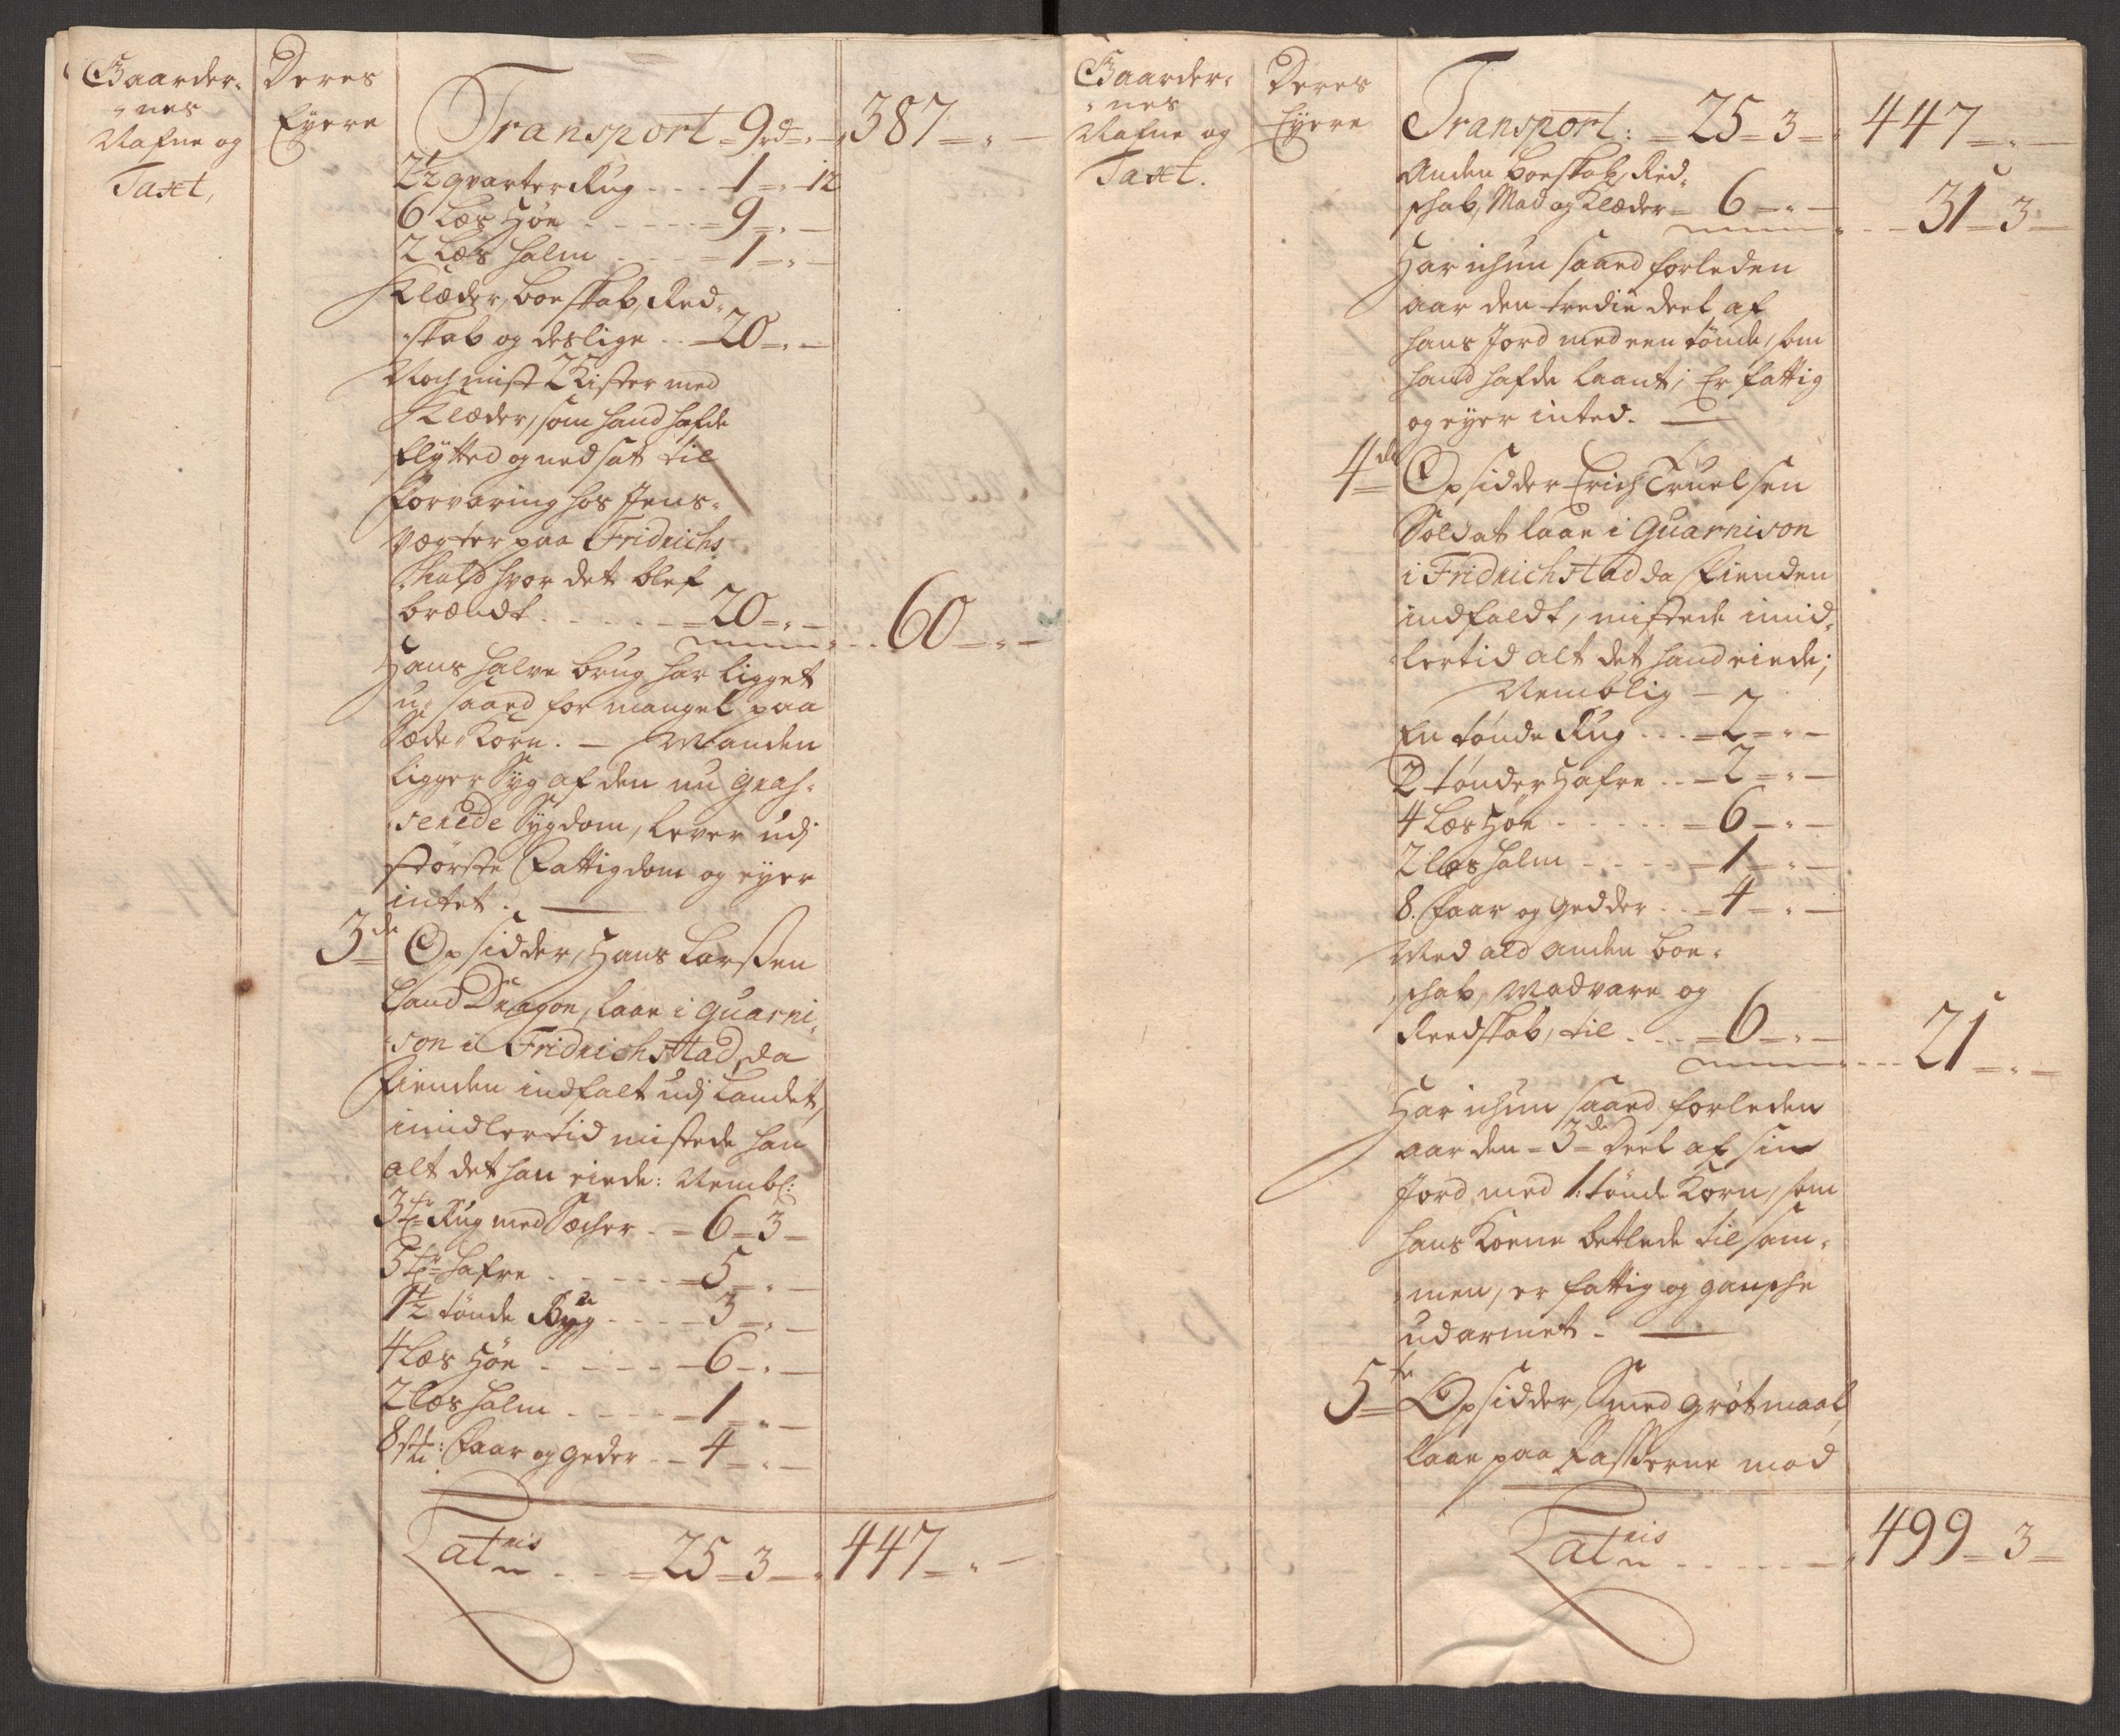 Gaarder-
nes
Nafne og
Taxt,
Deres
Eyere
Transport = 9 rd = „ - 387 = „ -
2½ qvarter Rug - - - 1 = „ - 12
6 Læs Høe - - - - - = 9 = „ -
2 Læs halm - - - = 1 = „ -
Klæder, boeskab, Red-
skab og deslige - - 20 = „ -
Noch mist 2 Kister med
Klæder, som hand hafde
flytted og nedsat til
forvaring hos Jens
Vegter paa Fridrichs
hald hvor det blef
brændt - - - - - = 20 = „ - - - 60 = „ -
Hans halve brug har ligget
u-saaed for mangel paa
Sæde-Korn. - Manden
ligger Syg af den nu gras-
serede Sygdom, lever udj
største Fattigdom og eyer
intet. -
3de Opsidder, Hans Larssen
Land Dragon, laae i Guarni-
son i Fridrichstad, da
Fienden indfalt udj Landet,
imidlertid mistede han
alt det han eiede: Nembl:
3 tr Rug med Sæcher - = 6 = 3 -
5 tr hafre - - - - - = 5 = „ -
1½ tønde Byg - - - - 3 = „ -
4 Læs Høe - - - - - 6 - „ -
2 Læs halm - - - - = 1 = „ -
8 st: Faar og geder - - 4 = „ -
Latris - - - = 25 = 3 - „ 447 = „ -
Gaarder-
nes
Nafne og
Taxt.
Deres
Eyere
Transport: = 25 = 3 = „ 447 = „ -
Anden boeskab, Red-
schab, Mad og Klæder - 6 = „ - - - 31 = 3 -
Har ichun saaed forleden
aar den tredie deel af
hans Jord med een tønde, som
hand hafde laant; Er fattig
og eyer inted. -
4de Opsidder Erich Truelsen
Soldat laae i Guarnison
i Fridrichstad da Fienden
indfaldt, mistede imid-
lertid alt det hand eiede;
Nemblig -
En tønde Rug - - - = 2 = „ -
2 tønder Hafre - - = 2 = „ -
4 Læs Høe - - - - - = 6 - „ -
2 Læs halm - - - - = 1 = „ -
8. Faar og gedder - - = 4 = „ -
Med ald anden boe-
schab, Madvare og
Reedskab, til - - - = 6 = „ - - - 21 = „ -
Har ichun saaed forleden
aar den = 3de Deel af sin
Jord med 1. tønde Korn, som
hans Kone betlede til sam-
men, er fattig og gansche
udarmet. -
5te Opsidder, Smed grøtmaal,
laae paa Passerne mod
Latris - - - - - - „ 499 = 3 -